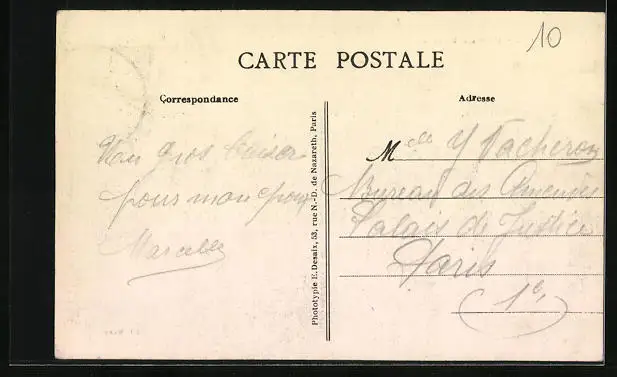 10
CARTE POSTALE
Correspondance
Adresse
Un gros baiser
pour mon
Marcelle
Phototypie E. Desaix, 53, rue N.-D. de Nazareth, Paris
Melle Y Vacheron
Bureau des Amendes
Palais de Justice
Paris
(1er)